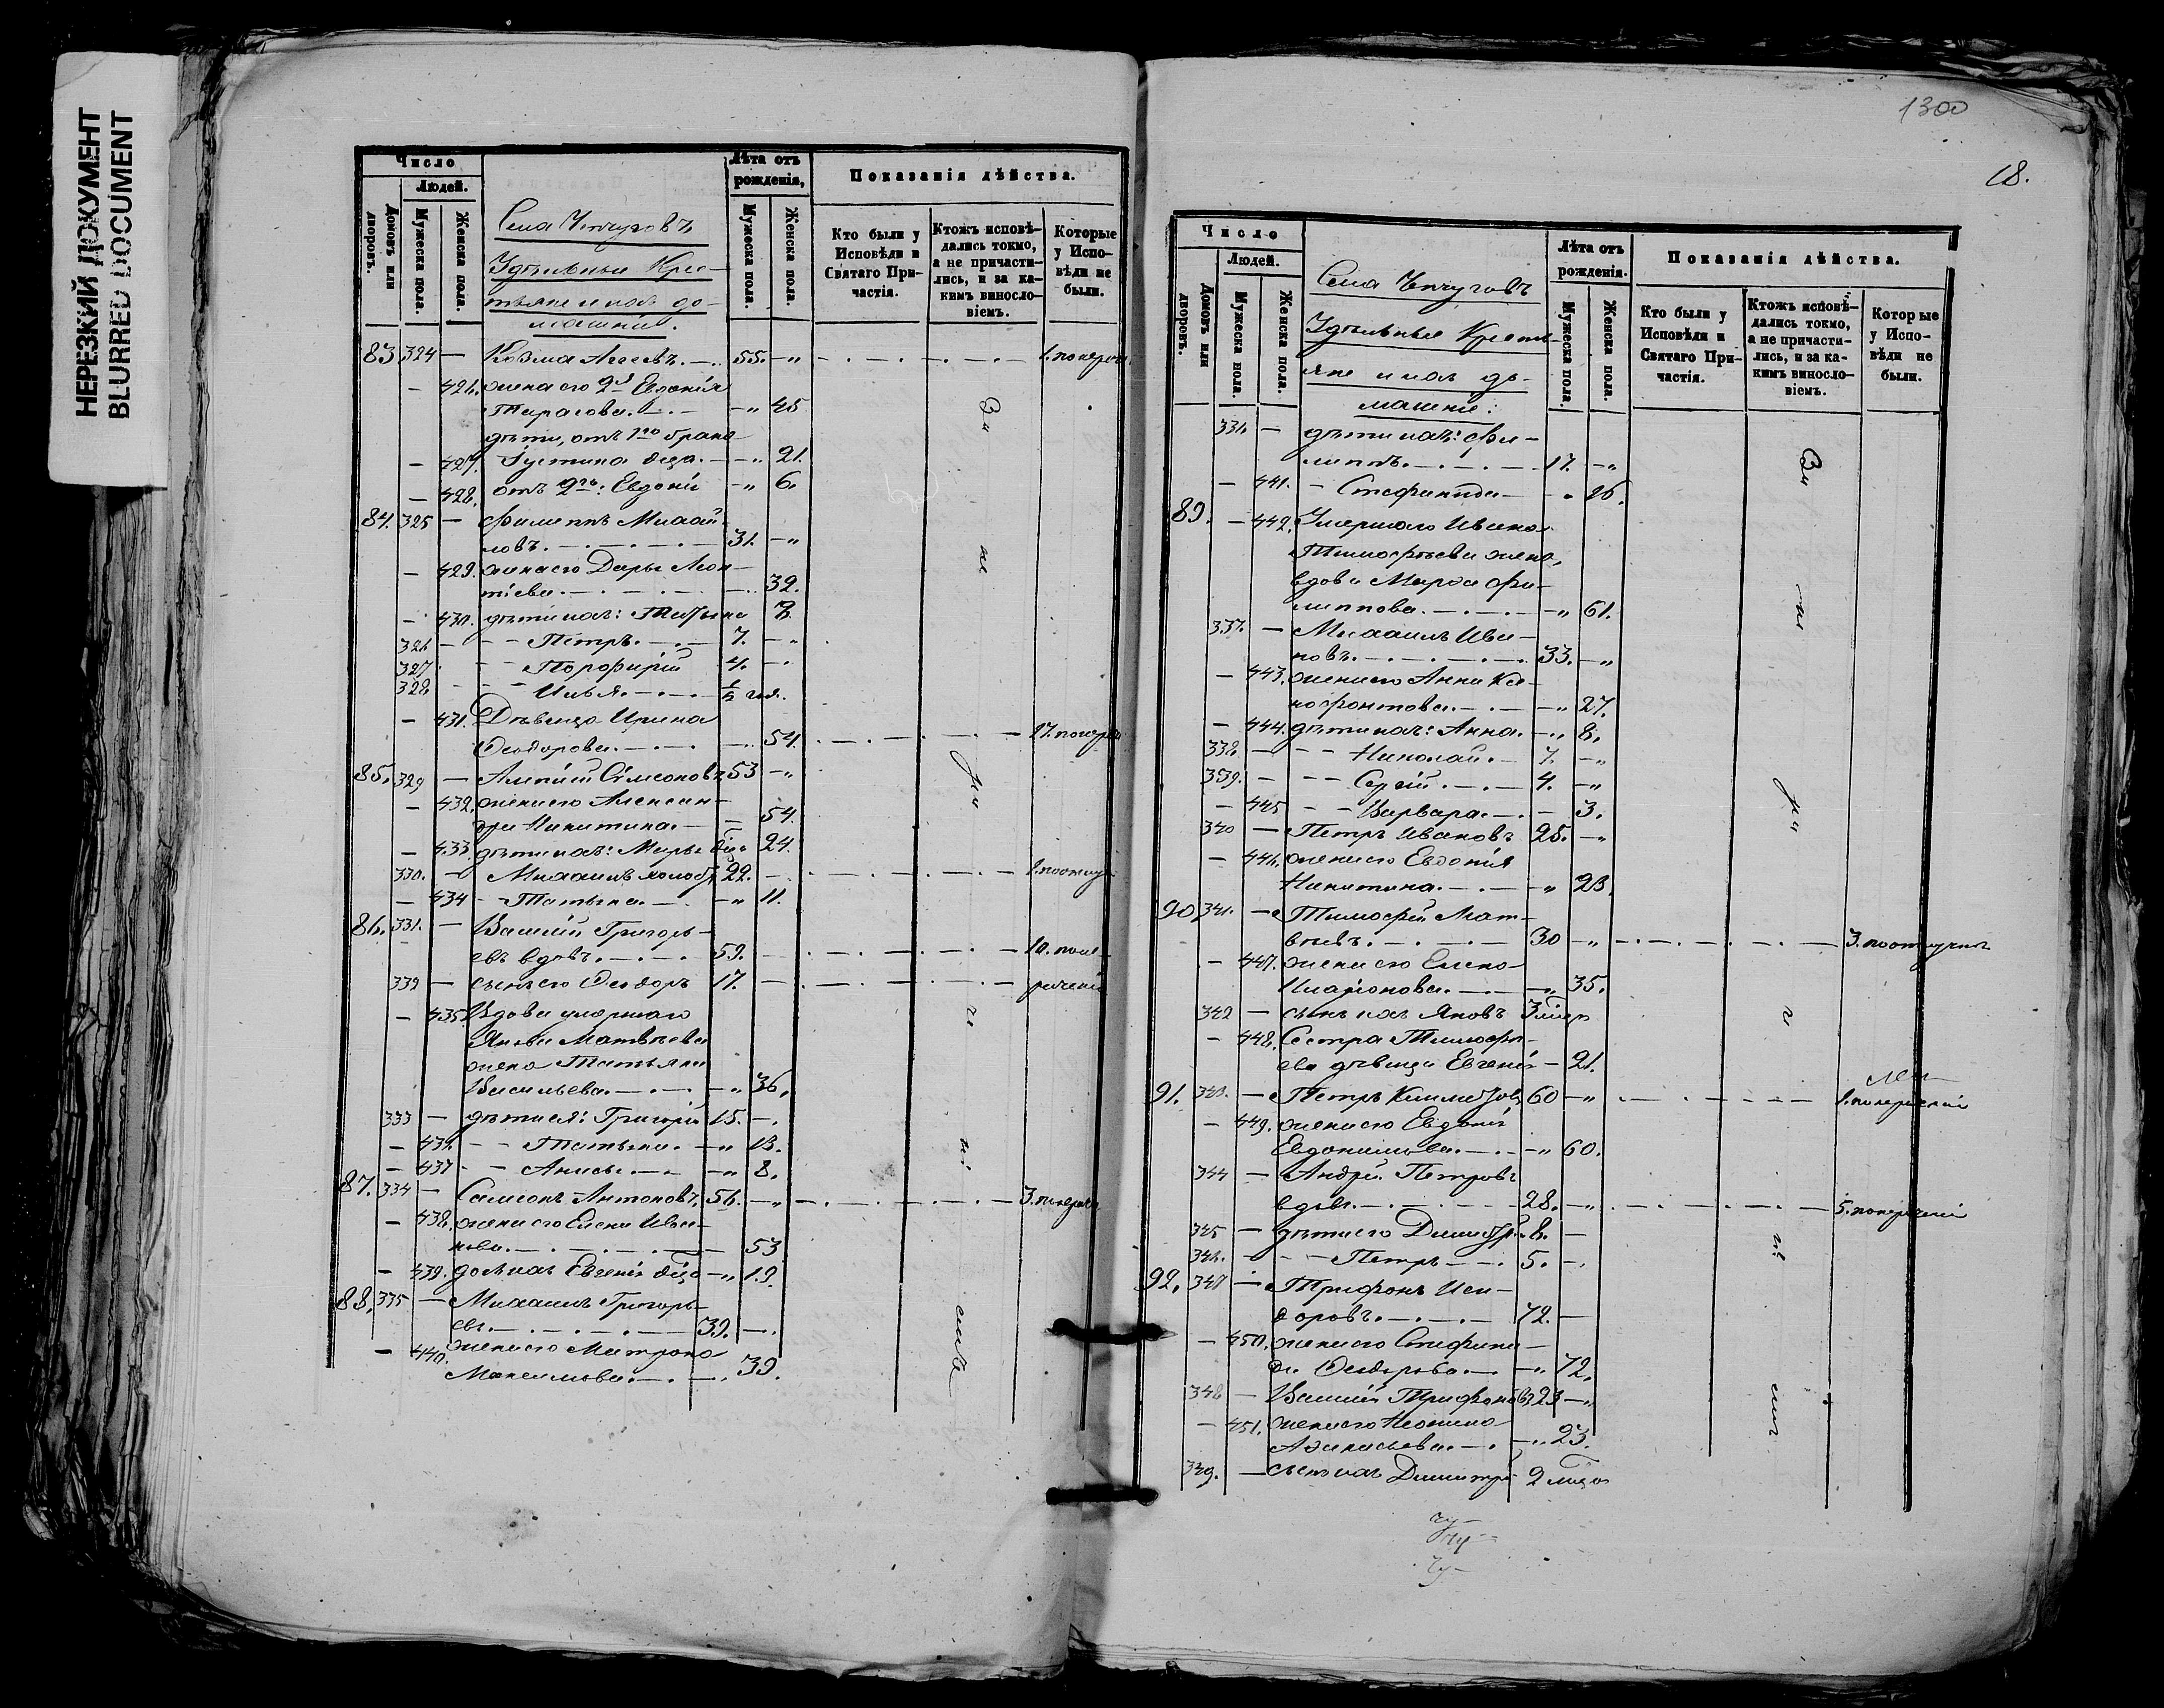 НЕРЕЗКИЙ ДОКУМЕНТ
BLURRED DOCUMENT
Число
Людей.
Домовъ или дворовъ.
Мужеска пола.
Женска пола.
Лѣта отъ рожденія,
Мужеска пола.
Женска пола.
Показанія дѣйства.
Кто были у Исповѣди и Святаго Причастія.
Ктожъ исповѣдались токмо, а не причастились, и за какимъ винословіемъ.
Которые у Исповѣди не были.
Села
Удѣльные Крес-
тьяне и ихъ до-
машніе.
83. 324 — Козма 55. — „
— 426. жена его 2я Евдокія
Тарасова. — „ 45
дѣти, отъ 1го брака
— 427. Іустина дѣца. — „ 21.
— 428. отъ 2го: Евдокія — „ 6.
84. 325 — Филиппъ Михай-
ловъ. 31. — „
— 429. жена его Дарья Леон-
тіева. — 39.
— 430. дѣти ихъ: Татьяна
326 — Петръ. 7. — „
327 Порфирій 4. —
328 Илья.
— 431. Дѣвица Ирина
Ѳеодорова. — 54.
85. 329 — Алипій Сѵмеоновъ 53 — „
— 432. жена его Алексан-
дра Никитина. — 54.
— 433. дѣти ихъ: Марья дца 24.
330. — Михаилъ 22. —
— 434 — Татьяна. — „ 11.
86. 331. — Василій Григорь-
евъ вдовъ. 59. —
332 — сынъ его Ѳеодоръ 17. —
— 435. Вдова умершаго
Якова Матвѣева
жена Татьяна
Васильева. — „ 36.
333 — дѣти ея: Григорій 15. —
— 436. Татьяна. — „ 13.
— 437 Анисья — „ 8.
87. 334 — Самсонъ Антоновъ. 56. — „
— 438. жена его Елена Ива-
нова. — 53
— 439. дочь ихъ Евгенія дѣца — „ 19.
88. 335 — Михаилъ Григорь-
евъ. 39. —
— 440. жена его Матрона
Максимова. — 39.
1300
18.
Число
Людей.
Домовъ или дворовъ.
Мужеска пола.
Женска пола.
Лѣта отъ рожденія.
Мужеска пола.
Женска пола.
Показанія дѣйства.
Кто были у Исповѣди и Святаго Причастія.
Ктожъ исповѣдались токмо, а не причастились, и за какимъ винословіемъ.
Которые у Исповѣди не были.
Села
Удѣльные Кресть-
яне и ихъ до-
машніе:
336 — дѣти ихъ: Фи-
липпъ. 17. — „
— 441. — Стефанида — 26.
89. — 442. Умершаго Ивана
Тимофѣева жена,
вдова Марфа Фи-
липпова. — „ 61.
337. — Михаилъ Ива-
новъ. 33. — „
— 443. жена его Анна Ксе-
нофонтова. — „ 27.
— 444. дѣти ихъ: Анна. — „ 8.
338. — Николай. 7. — „
339. — Сергій. 4. — „
— 445 Варвара. — 3.
340 — Петръ Ивановъ 25. — „
— 446. жена его Евдокія
Никитина. — „ 23.
90. 341. — Тимофей Мат-
вѣевъ. 30 — „ 3. по отлучкѣ
— 447. жена его Елена
Иларіонова. — „ 35.
342 — сынъ ихъ Яковъ
— 448. Сестра Тимофѣ-
ева дѣвица Евгенія — 21.
91. 343. — Петръ 60 — „
— 449. жена его Евдокія
Евдокимова. — „ 60.
344 — Андрей Петровъ
вдовъ. 28. — „
345 — дѣти его Димитрій 8. —
346. — Петръ 5. —
92. 347 — Трифонъ Иси-
доровъ. 72. —
— 450. жена его Стефани-
да Ѳеодорова. — „ 72.
348 — Василій Трифоновъ 23 — „
— 451. жена его Неонила
Аѳанасьева. — „ 23.
349. — сынъ ихъ Димитрій